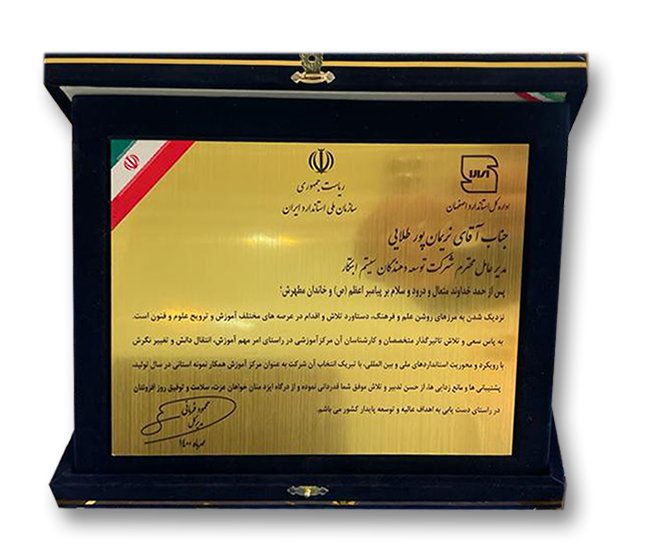 ریاست جمهوری
سازمان ملی استاندارد ایران
اداره کل استاندارد اصفهان
جناب آقای نریمان پور طلایی
مدیر عامل محترم شرکت توسعه دهندگان سیستم ابتکار
پس از حمد خداوند متعال و درود و سلام بر پیامبر اعظم (ص) و خاندان مطهرش؛
نزدیک شدن به مرزهای روشن علم و فرهنگ، دستاورد تلاش و اقدام در عرصه های مختلف آموزش و ترویج علوم و فنون است.
به پاس سعی و تلاش تاثیرگذار متخصصان و کارشناسان آن مرکزآموزشی در راستای امر مهم آموزش، انتقال دانش و تغییر نگرش
با رویکرد و محوریت استانداردهای ملی و بین المللی، با تبریک انتخاب آن شرکت به عنوان مرکز آموزش همکار نمونه استانی در سال تولید،
پشتیبانی ها و مانع زدایی ها، از حسن تدبیر و تلاش موفق شما قدردانی نموده و از درگاه ایزد منان خواهان عزت، سلامت و توفیق روز افزونتان
در راستای دست یابی به اهداف عالیه و توسعه پایدار کشور می باشم.
محمود فرمانی
مدیرکل
مهرماه ۱۴۰۰